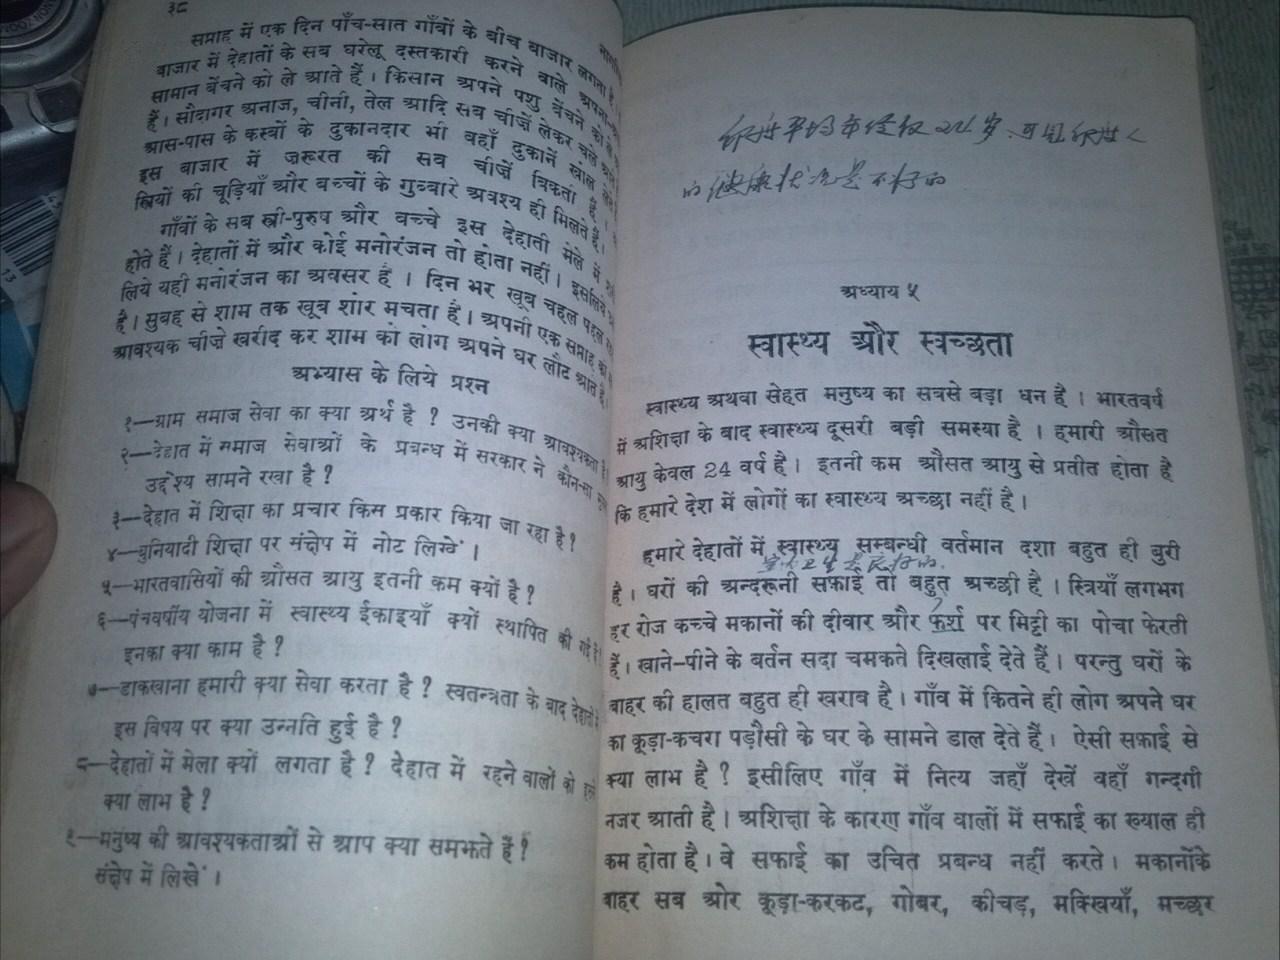 ३८
सप्ताह में एक दिन पाँच-सात गाँवों के बीच बाजार लगता है।
बाजार में देहातों के सब घरेलू दस्तकारी करने वाले अपना-अपना
सामान बेंचने को ले आते हैं। किसान अपने पशु बेंचने को
हैं। सौदागर अनाज, चीनी, तेल आदि सब चीज़ें लेकर चले आते
आस-पास के कस्बों के दुकानदार भी वहाँ दुकानें खोल
इस बाजार में जरूरत की सब चीजें बिकती हैं।
स्त्रियों की चूड़ियाँ और बच्चों के गुब्बारे अवश्य ही मिलते हैं।
गाँवों के सब स्त्री-पुरुष और बच्चे इस देहाती मेले में
होते हैं। देहातों में और कोई मनोरंजन तो होता नहीं। इसलिये
लिये यही मनोरंजन का अवसर है। दिन भर खूब चहल पहल
है। सुबह से शाम तक खूब शोर मचता है। अपनी एक सप्ताह की
आवश्यक चीज़ें खरीद कर शाम को लोग अपने घर लौट आते हैं।
अभ्यास के लिये प्रश्न
१—ग्राम समाज सेवा का क्या अर्थ है ? उनकी क्या आवश्यकता
२—देहात में समाज सेवाओं के प्रबन्ध में सरकार ने कौन-सा
उद्देश्य सामने रखा है ?
३—देहात में शिक्षा का प्रचार किस प्रकार किया जा रहा है ?
४—बुनियादी शिक्षा पर संक्षेप में नोट लिखें।
५—भारतवासियों की औसत आयु इतनी कम क्यों है ?
६—पंचवर्षीय योजना में स्वास्थ्य ईकाइयाँ क्यों स्थापित की गई हैं
इनका क्या काम है ?
७—डाकखाना हमारी क्या सेवा करता है ? स्वतन्त्रता के बाद देहातों में
इस विषय पर क्या उन्नति हुई है ?
८—देहातों में मेला क्यों लगता है ? देहात में रहने वालों को इससे
क्या लाभ है ?
९—मनुष्य की आवश्यकताओं से आप क्या समझते हैं ?
संक्षेप में लिखें।
印度平均年 岁, 可
的健康状况是不好的
अध्याय ५
स्वास्थ्य और स्वच्छता
स्वास्थ्य अथवा सेहत मनुष्य का सबसे बड़ा धन है। भारतवर्ष
में अशिक्षा के बाद स्वास्थ्य दूसरी बड़ी समस्या है। हमारी औसत
आयु केवल 24 वर्ष है। इतनी कम औसत आयु से प्रतीत होता है
कि हमारे देश में लोगों का स्वास्थ्य अच्छा नहीं है।
हमारे देहातों में स्वास्थ्य सम्बन्धी वर्तमान दशा बहुत ही बुरी
है। घरों की अन्दरूनी सफ़ाई तो बहुत अच्छी है। स्त्रियाँ लगभग
हर रोज कच्चे मकानों की दीवार और फर्श पर मिट्टी का पोचा फेरती
हैं। खाने-पीने के बर्तन सदा चमकते दिखलाई देते हैं। परन्तु घरों के
बाहर की हालत बहुत ही खराब है। गाँव में कितने ही लोग अपने घर
का कूड़ा-कचरा पड़ौसी के घर के सामने डाल देते हैं। ऐसी सफ़ाई से
क्या लाभ है ? इसीलिए गाँव में नित्य जहाँ देखें वहाँ गन्दगी
नजर आती है। अशिक्षा के कारण गाँव वालों में सफाई का ख्याल ही
कम होता है। वे सफाई का उचित प्रबन्ध नहीं करते। मकानोंके
बाहर सब ओर कूड़ा-करकट, गोबर, कीचड़, मक्खियाँ, मच्छर